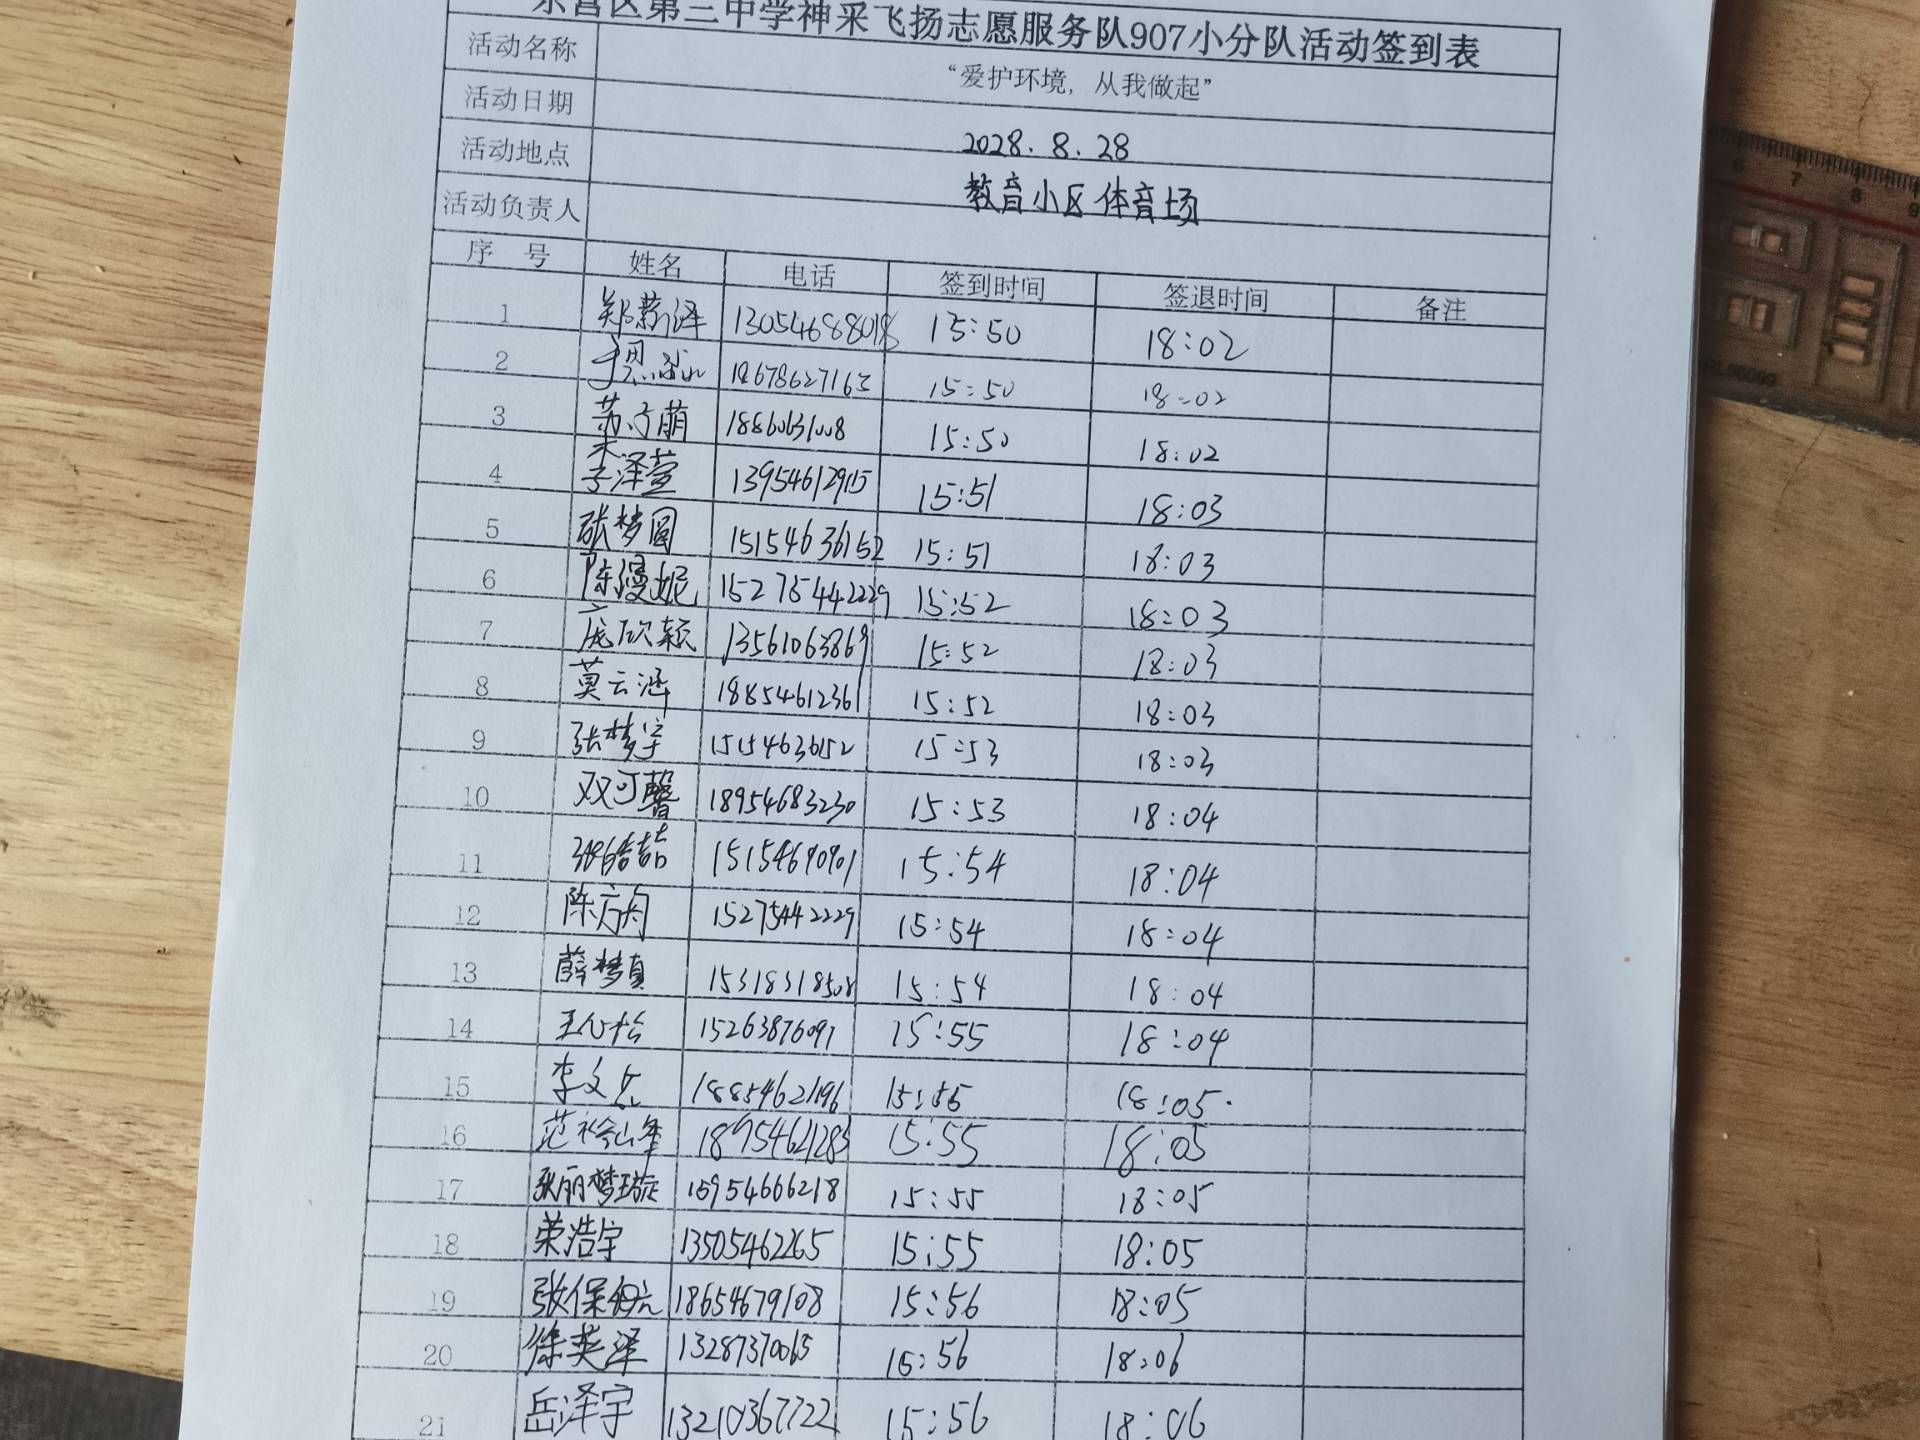 东营区第三中学神采飞扬志愿服务队907小分队活动签到表
活动名称 “爱护环境，从我做起”
活动日期 2028.8.28
活动地点 教育小区体育场
活动负责人
序 号 姓名 电话 签到时间 签退时间 备注
1 郑蕲泽 13054688018 15:50 18:02
2 18678627163 15:50 18:02
3 苏子萌 18860631008 15:50 18:02
4 李泽萱 13954612915 15:51 18:03
5 张梦圆 15154636152 15:51 18:03
6 陈漫妮 15275442229 15:52 18:03
7 庞欣颖 13561063869 15:52 18:03
8 莫云涵 18854612361 15:52 18:03
9 张梦宇 15154636152 15:53 18:03
10 双可馨 18954683230 15:53 18:04
11 15:54 18:04
12 陈方舟 15275442229 15:54 18:04
13 薛梦真 15318318508 15:54 18:04
14 15263876097 15:55 18:04
15 李文 18854621196 15:55 18:05
16 范 18954621285 15:55 18:05
17 15954666218 15:55 18:05
18 荣浩宇 13505462265 15:55 18:05
19 张保 18654679108 15:56 18:05
20 徐英泽 13287370065 15:56 18:06
21 岳泽宇 13210367722 15:56 18:06
6 7 8 9